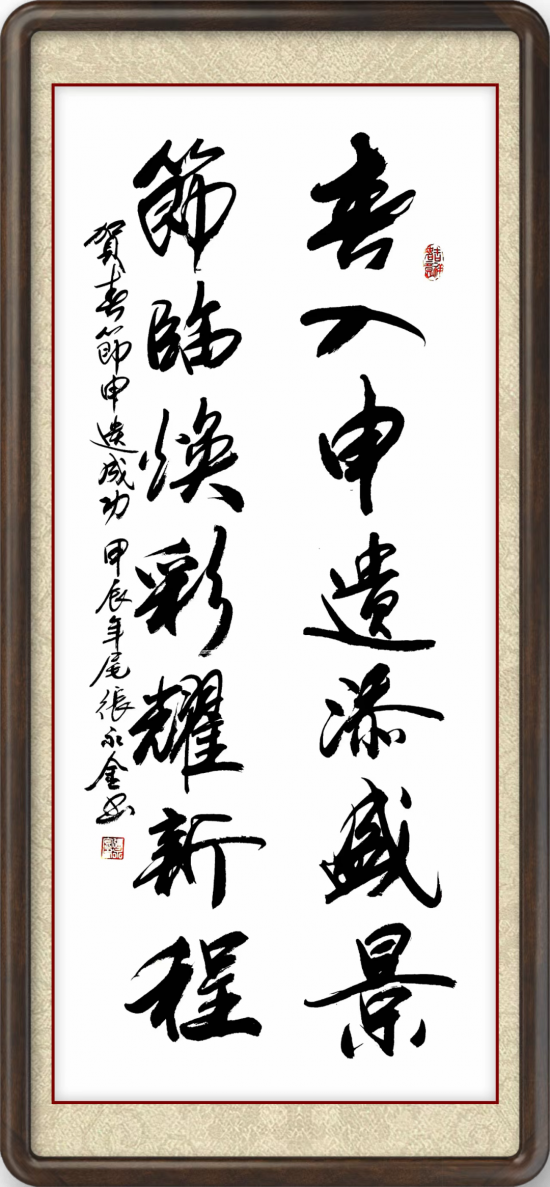 春入申遺添盛景
節臨煥彩耀新程
賀春節申遺成功 甲辰年尾張永金書